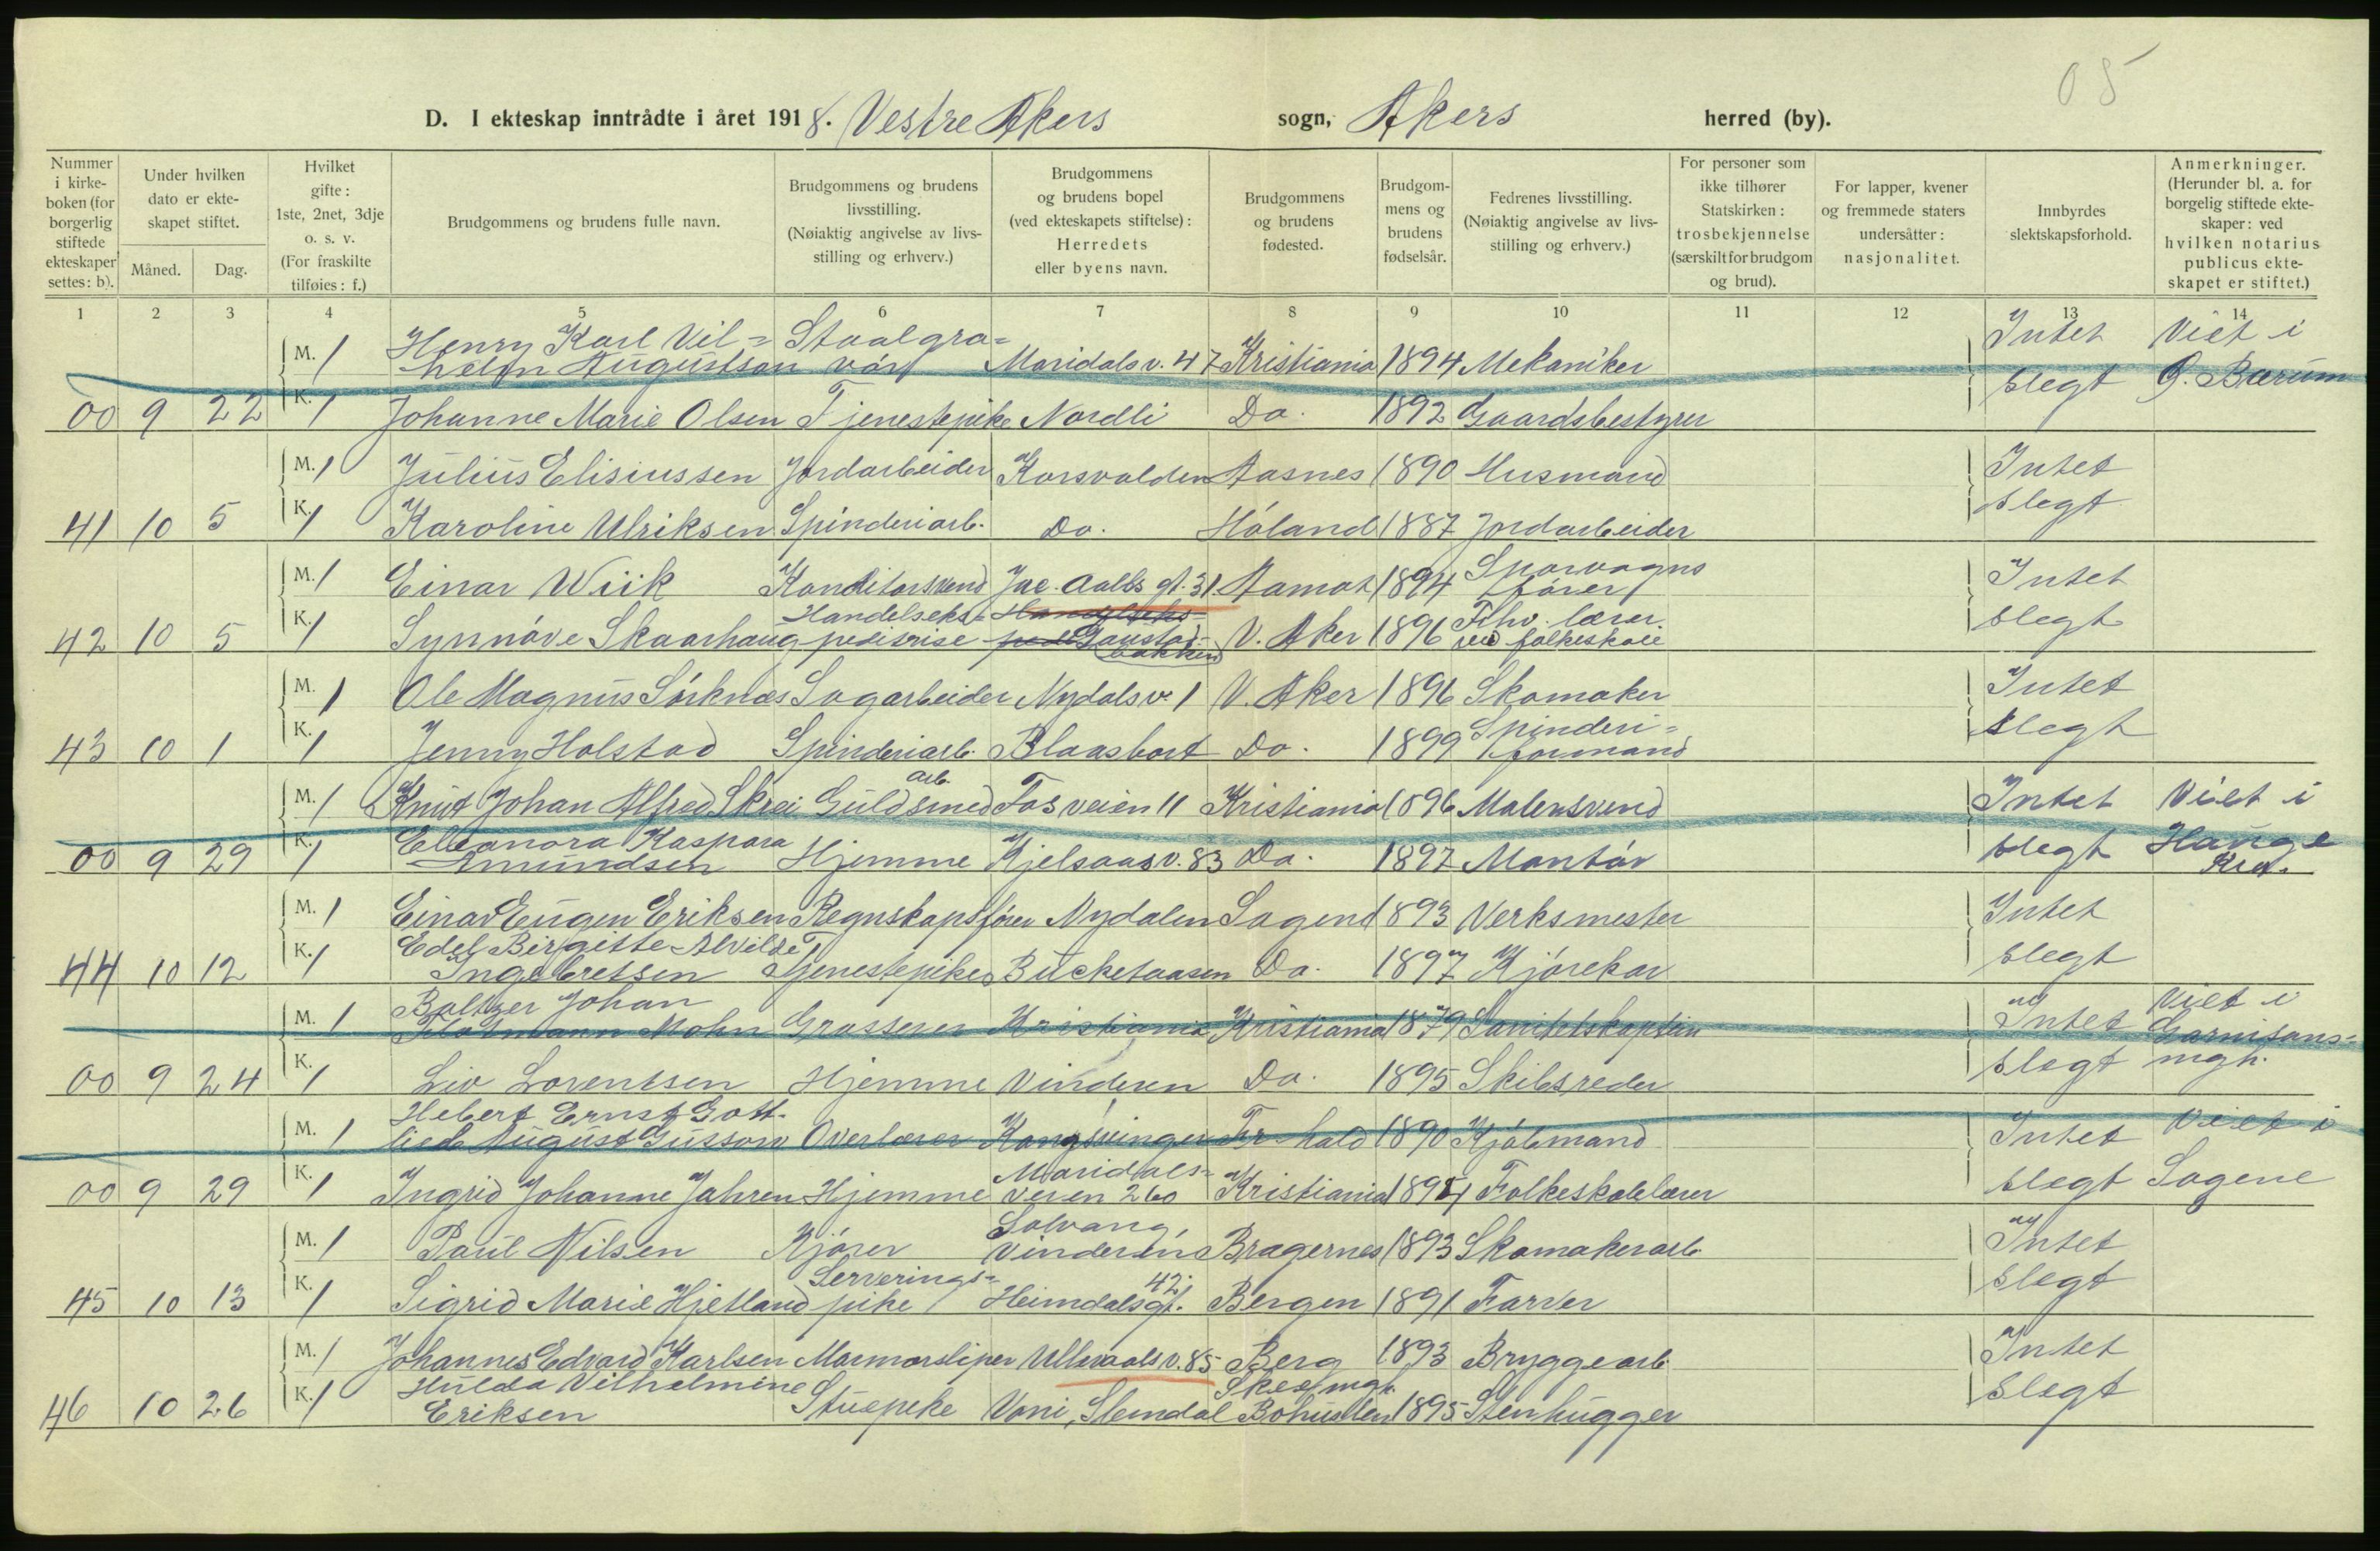 05
D. I ekteskap inntrådte i året 1918. Vestre Akers sogn, Akers herred (by).
Nummer i kirke-boken (for borgerlig stiftede ekteskaper settes: b).
Under hvilken dato er ekte-skapet stiftet.
Måned. Dag.
Hvilket gifte: 1ste, 2net, 3dje o. s. v. (For fraskilte tilføies: f.)
Brudgommens og brudens fulle navn.
Brudgommens og brudens livsstilling. (Nøiaktig angivelse av livs-stilling og erhverv.)
Brudgommens og brudens bopel (ved ekteskapets stiftelse): Herredets eller byens navn.
Brudgommens og brudens fødested.
Brudgom-mens og brudens fødselsår.
Fedrenes livsstilling. (Nøiaktig angivelse av livs-stilling og erhverv.)
For personer som ikke tilhører Statskirken: trosbekjennelse (særskilt for brudgom og brud).
For lapper, kvener og fremmede staters undersåtter: nasjonalitet.
Innbyrdes slektskapsforhold.
Anmerkninger. (Herunder bl. a. for borgelig stiftede ekte-skaper: ved hvilken notarius publicus ekte-skapet er stiftet.)
1 2 3 4 5 6 7 8 9 10 11 12 13 14
M. 1 Henry Karl Vil=helm Augustson Staalgra=vør Maridalsv. 47 Kristiania 1894 Mekaniker Intet Viet i
00 9 22 K. 1 Johanne Marie Olsen Tjenestepike Nordli Do. 1892 Gaardsbestyrer slegt Ø. Bærum
M. 1 Julius Elisiussen Jordarbeider Korsvolden Aasnes 1890 Husmand Intet
41 10 5 K. 1 Karoline Ulriksen Spinderiarb. Do. Høland 1887 Jordarbeider slegt
M. 1 Einar Wiik Konditorsvend Jac. Aalls gt. 31 Aamot 1894 Sporvogns fører Intet
42 10 5 K. 1 Synnøve Skaarhaug Handelseks=peditrise Handelseks= Gaustad-bakken V. Aker 1896 Fhv. lærer ved folkeskole slegt
M. 1 Ole Magnus Sørknæs Sagarbeider Nydalsv. 1 V. Aker 1896 Skomaker Intet
43 10 1 K. 1 Jenny Holstad Spinderiarb. Blaasbort Do. 1899 Spinderi=formand slegt
M. 1 Knut Johan Alfred Skrei Guldsmed arb. Fosveien 11 Kristiania 1896 Malersvend Intet Viet i
00 9 29 K. 1 Elleonora Kaspara Amundsen Hjemme Kjelsaasv. 83 Do. 1897 Montør slegt Hauge Kra.
M. 1 Einar Eugen Eriksen Regnskapsfører Nydalen Sagene 1893 Verksmester Intet
44 10 12 K. 1 Edel Birgitte Alvilde Ingebretsen Tjenestepike Bücketaasen Do. 1897 Kjørekar slegt
M. 1 Baltzer Johan Mohn Grosserer Kristiania Kristiania 1879 Sanitetskaptein Intet Viet i Garnisons=
00 9 24 K. 1 Liv Lorentsen Hjemme Vinderen Do. 1895 Skibsreder slegt mgh.
M. 1 Hebert Ernst Gott-lieb August Gussow Overlærer Kongsvinger Fr.hald 1890 Kjøbmand Intet Viet i
00 9 29 K. 1 Ingrid Johanne Jahren Hjemme Maridals=veien 260 Kristiania 1894 Folkeskolelærer slegt Sagene
M. 1 Paul Nilsen Kjører Solvang, Vinderen Bragernes 1893 Skomakerarb. Intet
45 10 13 K. 1 Sigrid Marie Hjetland Serverings=pike Heimdalsgt. 42. Bergen 1891 Farver slegt
M. 1 Johannes Edvard Karlsen Marmorsliper Ullevaalsv. 85 Berg 1893 Bryggearb. Intet
46 10 26 K. 1 Hulda Vilhelmine Eriksen Stuepike Voni, Slemdal Skee mgh. Bohuslen 1895 Stenhugger slegt